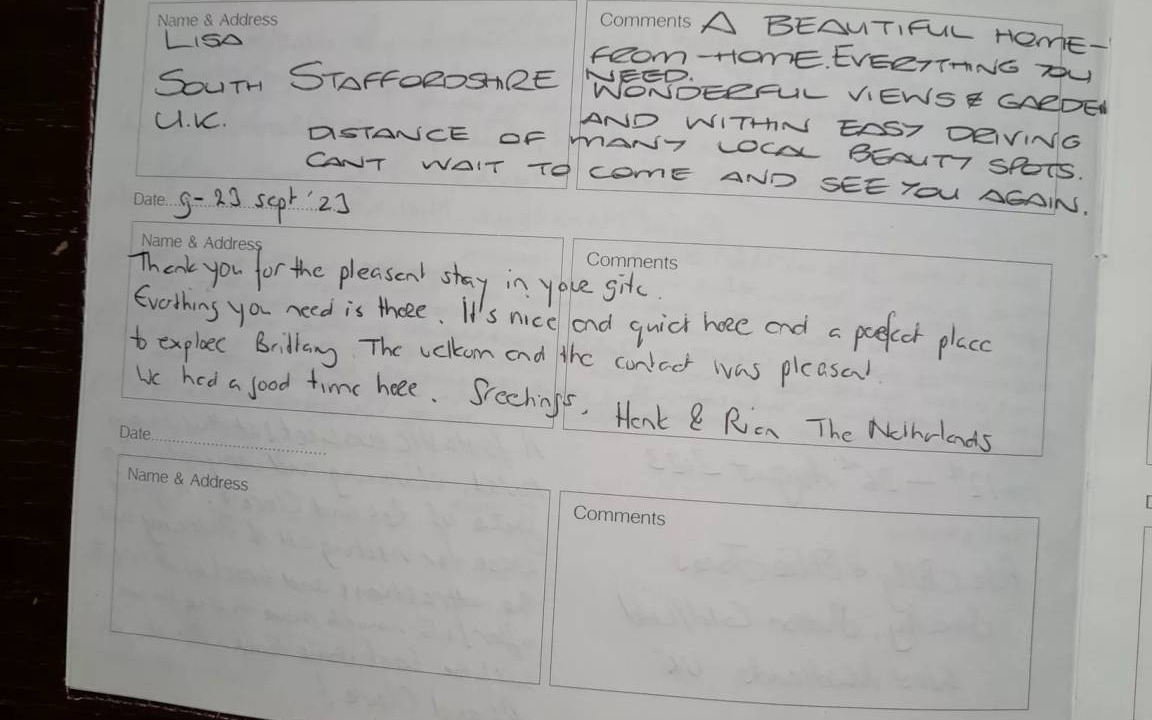 Name & Address
LISA
SOUTH STAFFORDSHIRE
U.K.
Comments A BEAUTIFUL HOME-
FROM-HOME. EVERYTHING YOU
NEED.
WONDERFUL VIEWS & GARDEN
AND WITHIN EASY DRIVING
DISTANCE OF MANY LOCAL BEAUTY SPOTS.
CANT WAIT TO COME AND SEE YOU AGAIN.
Date 9-23 sept '23
Name & Address
Comments
Thank you for the pleasent stay in your gite.
Everthing you need is there. It's nice and quiet here and a perfect place
to explore Brittany. The welkom and the contact was pleasent.
We had a good time here. Greetings, Henk & Rien The Netherlands
Date
Name & Address
Comments